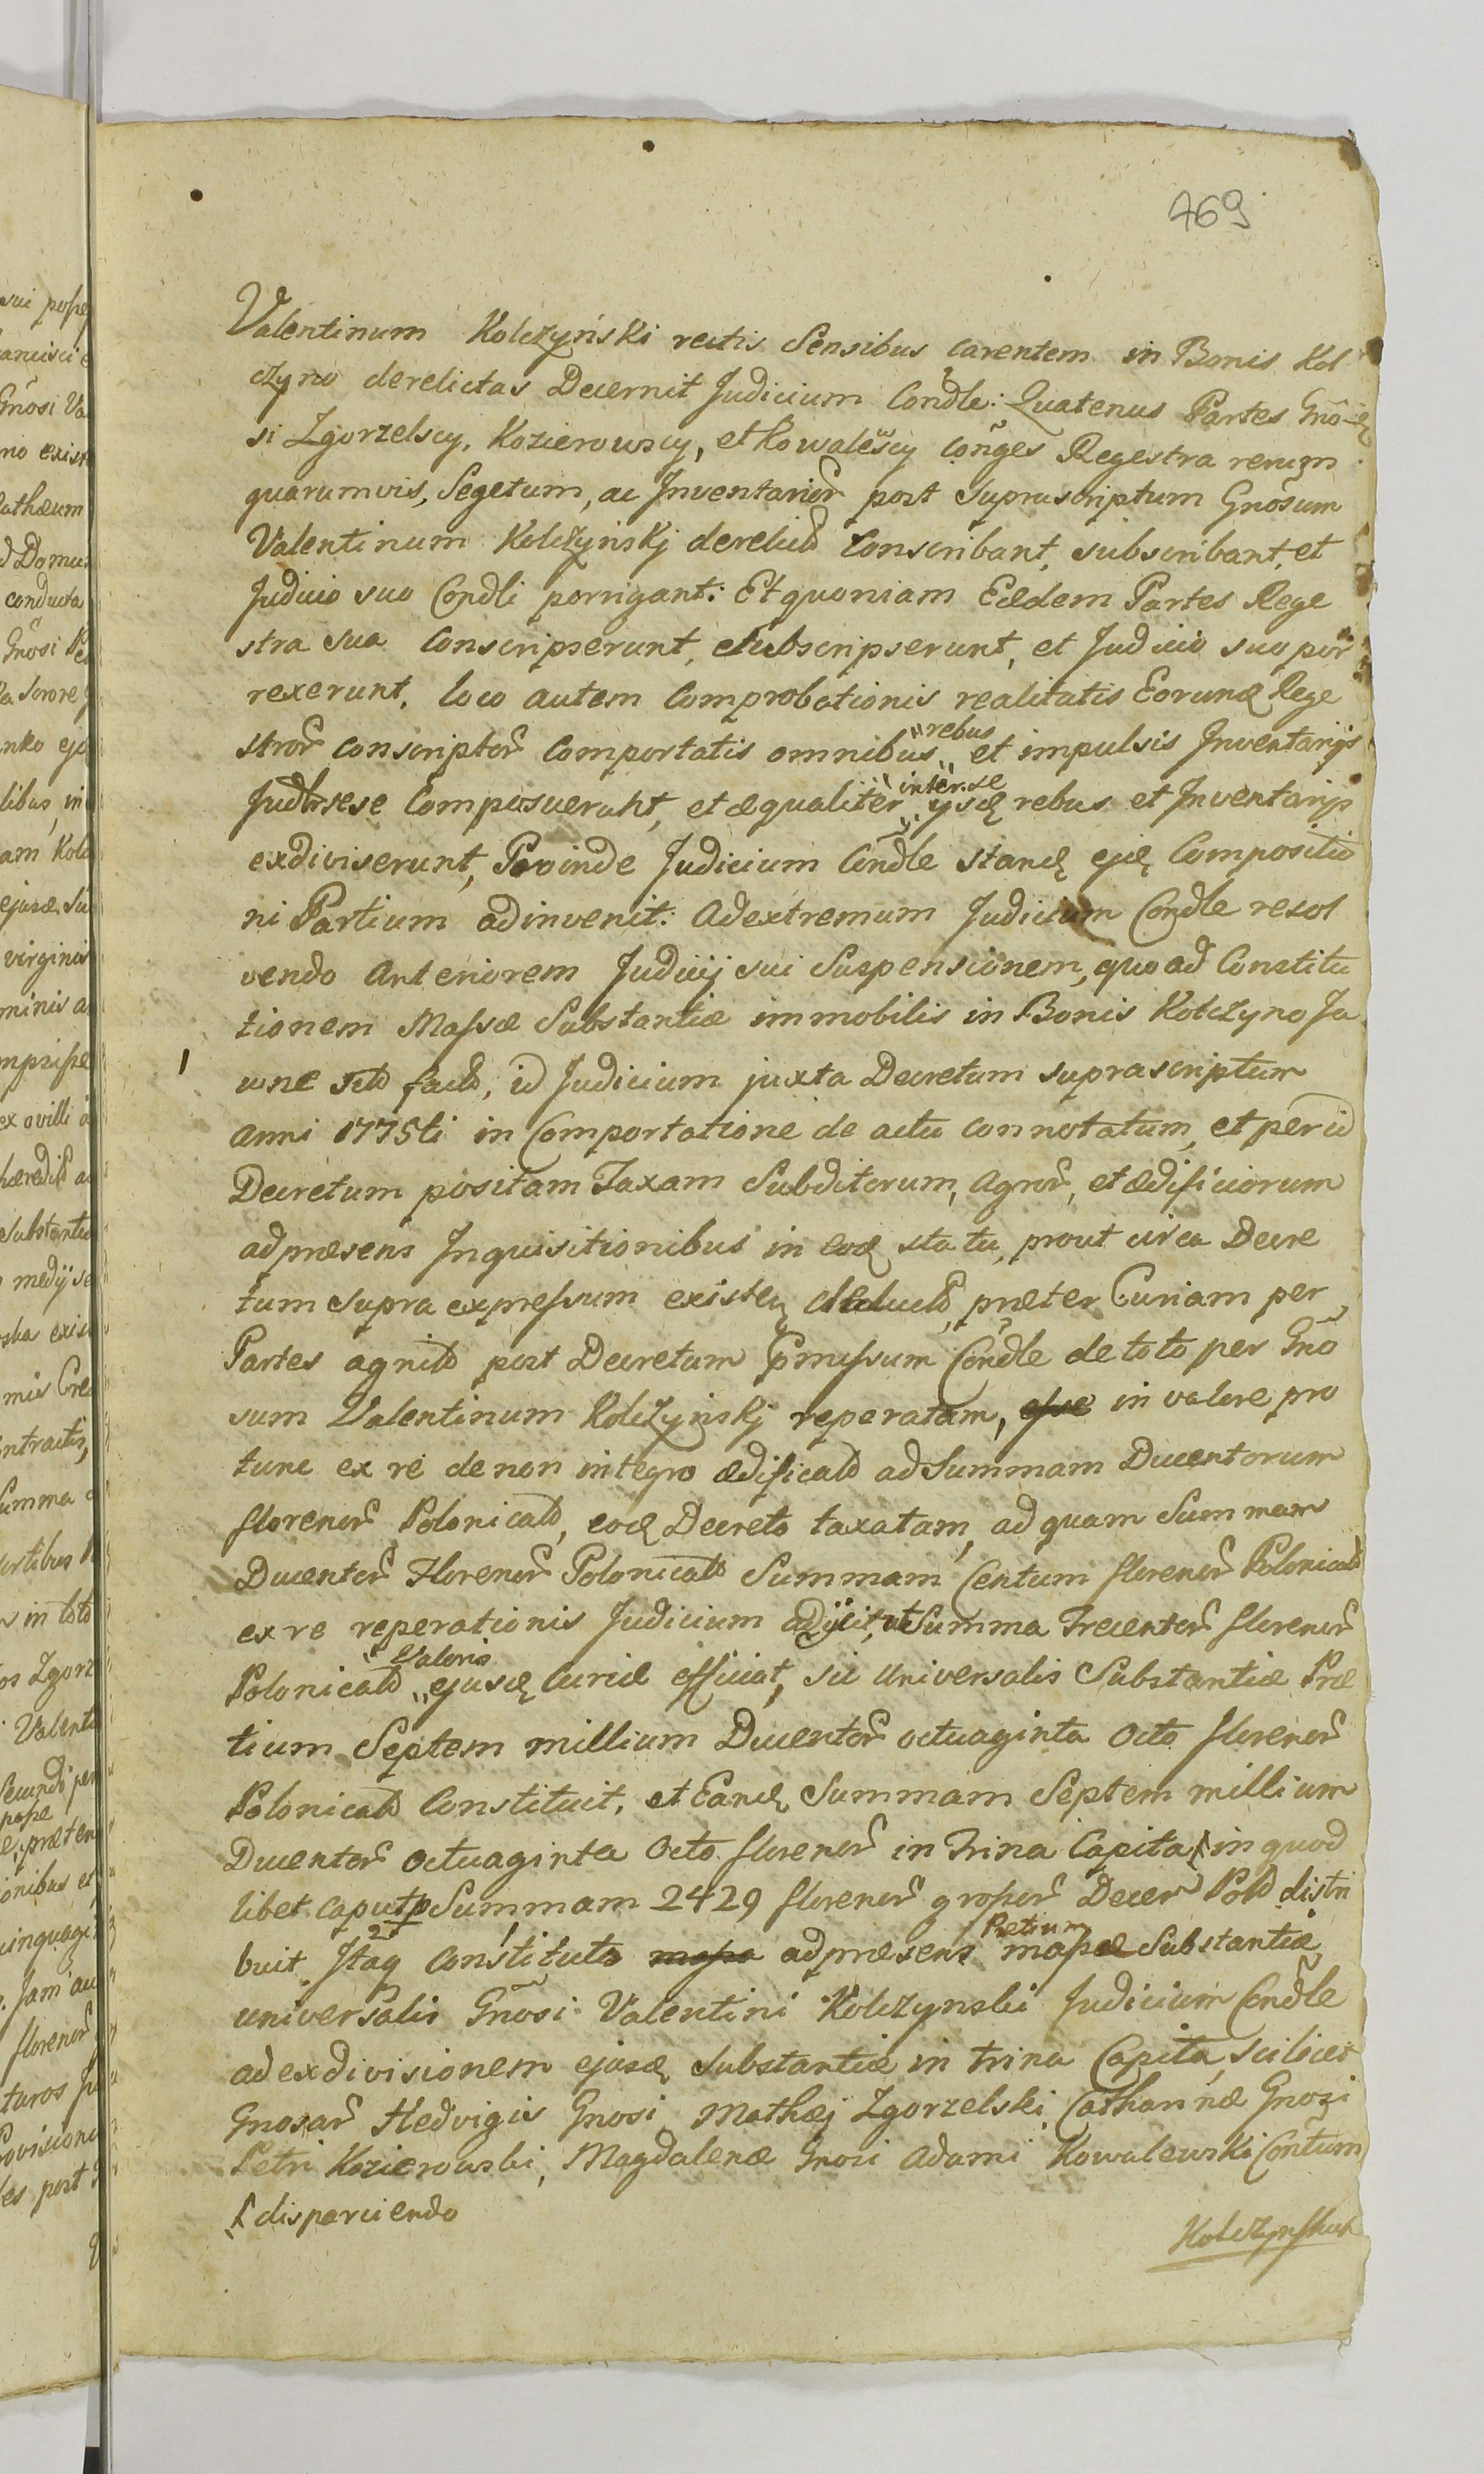 769
Valentinum Kolczyński rectis Sensibus Carentem in Bonis Kol
czyno derelictas Decernit Judicium Condle: Quatenus Partes Gno
si Zgorzelscy, Kozierowscy, et Kowalewscy Conges Regestra rerum
quarumvis, Segetum, ac Inventarior post suprascriptum Gnosum
Valentinum Kolczyńskj derelict Conscribant, subscribant, et
Judicio suo Condli porrigant: Et quoniam Eædem Partes Rege
stra sua Conscripserunt, Subscripserunt, et Judicio suo por
rexerunt, loco autem Comprobationis realitatis Eorund Rege
stror conscriptor Comportatis omnibus rebus et impulsis Inventarijs
sese Composuerunt, et æqualiter inter se rebus et Inventarijs
exdiviserunt, Proinde Judicium Condle stand ejd Compositio
ni Partium adinvenit: Ad extremum Judicium Condle resol
vendo Anteriorem Judicij sui Suspensionem, quo ad Constitu
tionem Massæ Substantiæ immobilis in Bonis Kolczyno Ja
wne fact, id Judicium juxta Decretum suprascriptum
anni 1775ti in Comportatione de actu connotatum, et per id
Decretum positam Taxam Subditorum, Agror, et ædificiorum
ad præsens Inquisitionibus in eod statu, prout circa Decre
tum supra expressum existen deduct, præter Curiam per
Partes agnit post Decretum præmissum Condle de toto per Gno
sum Valentinum Kolczyńskj reperatam, esse in valore pro
tunc ex re de non integro ædificat ad Summam Ducentorum
florenor Polonicalt, eod Decreto taxatam, ad quam Summam
Ducentor Florenor Polonicalt Summam Centum florenor Polonicalt
ex re reperationis Judicium adijcit, ut Summa Trecentor florenor
Polonicalt Valoris ejusd Curiæ efficiat, sic Universalis Substantiæ Præ
tium Septem millium Ducentor octuaginta Octo florenor
Polonicalt Constituit, et Eand Summam Septem millium
Ducentor octuaginta Octo florenor in Trina Capita in quod
libet Caput Summam 2429 florenor grossor Decem Pold distri
buit. Itaq Constituto massa ad præsens Pretium massæ Substantiæ
universalis Gnosi Valentini Kolczynski Judicium Condle
ad exdivisionem ejusd Substantiæ in trina Capita, scilicet
Gnosar Hedvigis Gnosi Mathæj Zgorzelski, Catharinæ Gnosi
Petri Kozierowski, Magdalenæ Gnosi Adami Kowalewski Contum
disparciendo